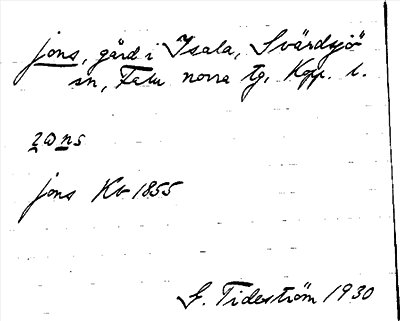 jons, gård i Isala, Svärdsjö
sn, Falu norra tg, Kopp. l.
jons Kb 1855
G. Tideström 1930